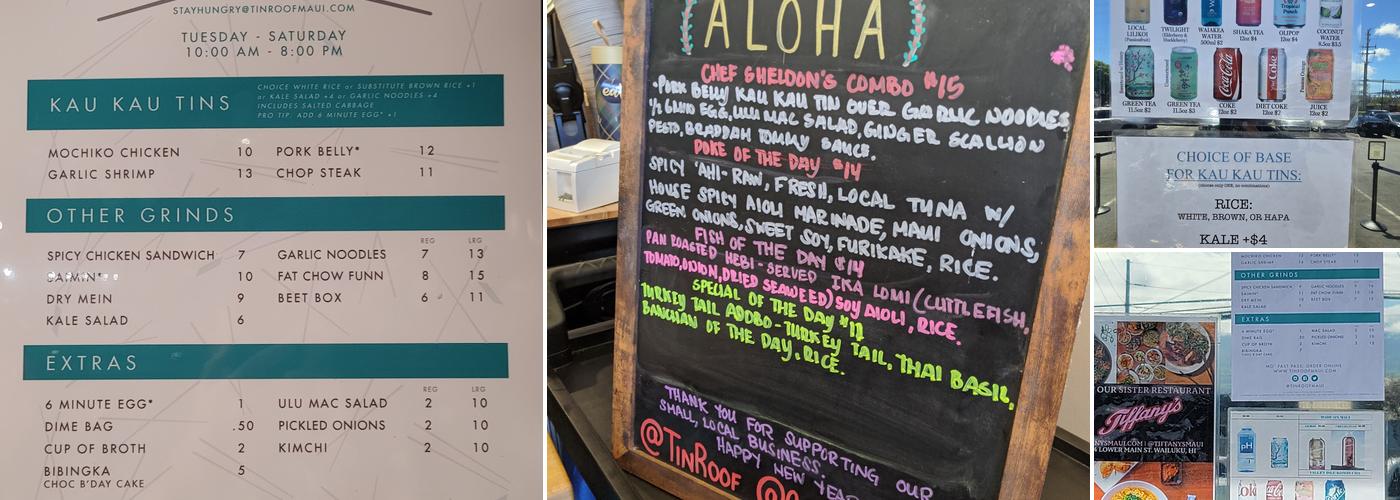 STAYHUNGRY@TINROOFMAUI.COM
TUESDAY - SATURDAY
10:00 AM - 8:00 PM
KAU KAU TINS
CHOICE WHITE RICE or SUBSTITUTE BROWN RICE +1
or KALE SALAD +4 or GARLIC NOODLES +4
INCLUDES SALTED CABBAGE
PRO TIP: ADD 6 MINUTE EGG* +1
MOCHIKO CHICKEN 10 PORK BELLY* 12
GARLIC SHRIMP 13 CHOP STEAK 11
OTHER GRINDS
REG LRG
SPICY CHICKEN SANDWICH 7 GARLIC NOODLES 7 13
SAIMIN* 10 FAT CHOW FUNN 8 15
DRY MEIN 9 BEET BOX 6 11
KALE SALAD 6
EXTRAS
REG LRG
6 MINUTE EGG* 1 ULU MAC SALAD 2 10
DIME BAG .50 PICKLED ONIONS 2 10
CUP OF BROTH 2 KIMCHI 2 10
BIBINGKA 5
CHOC B'DAY CAKE
ALOHA
CHEF SHELDON'S COMBO $15
•PORK BELLY KAU KAU TIN OVER GARLIC NOODLES,
1/2 6 MIN EGG, ULU MAC SALAD, GINGER SCALLION
PESTO, BRADDAH TOMMY SAUCE.
POKE OF THE DAY $14
SPICY 'AHI- RAW, FRESH, LOCAL TUNA W/
HOUSE SPICY AIOLI MARINADE, MAUI ONIONS,
GREEN ONIONS, SWEET SOY, FURIKAKE, RICE.
FISH OF THE DAY $14
PAN ROASTED HEBI- SERVED IKA LOMI (CUTTLEFISH,
TOMATO, ONION, DRIED SEAWEED) SOY AIOLI, RICE.
SPECIAL OF THE DAY $11
TURKEY TAIL ADOBO- TURKEY TAIL, THAI BASIL,
BANCHAN OF THE DAY, RICE.
THANK YOU FOR SUPPORTING OUR
SMALL, LOCAL BUSINESS.
HAPPY NEW YEAR
@TINROOF
LOCAL LILIKOI (Passionfruit)
TWILIGHT (Elderberry & Huckleberry)
WAIAKEA WATER 500ml $2
SHAKA TEA 12oz $4
OLIPOP 12oz $4
COCONUT WATER 8.5oz $3.5
GREEN TEA 11.5oz $2
GREEN TEA 11.5oz $3
COKE 12oz $2
DIET COKE 12oz $2
JUICE 12oz $2
CHOICE OF BASE
FOR KAU KAU TINS:
(choose only ONE, no combinations)
RICE:
WHITE, BROWN, OR HAPA
KALE +$4
OTHER GRINDS
EXTRAS
MO' FAST PASS: ORDER ONLINE
WWW.TINROOFMAUI.COM
@TINROOFMAUI
OUR SISTER RESTAURANT
Tiffany's
@TIFFANYSMAUI
LOWER MAIN ST. WAILUKU, HI